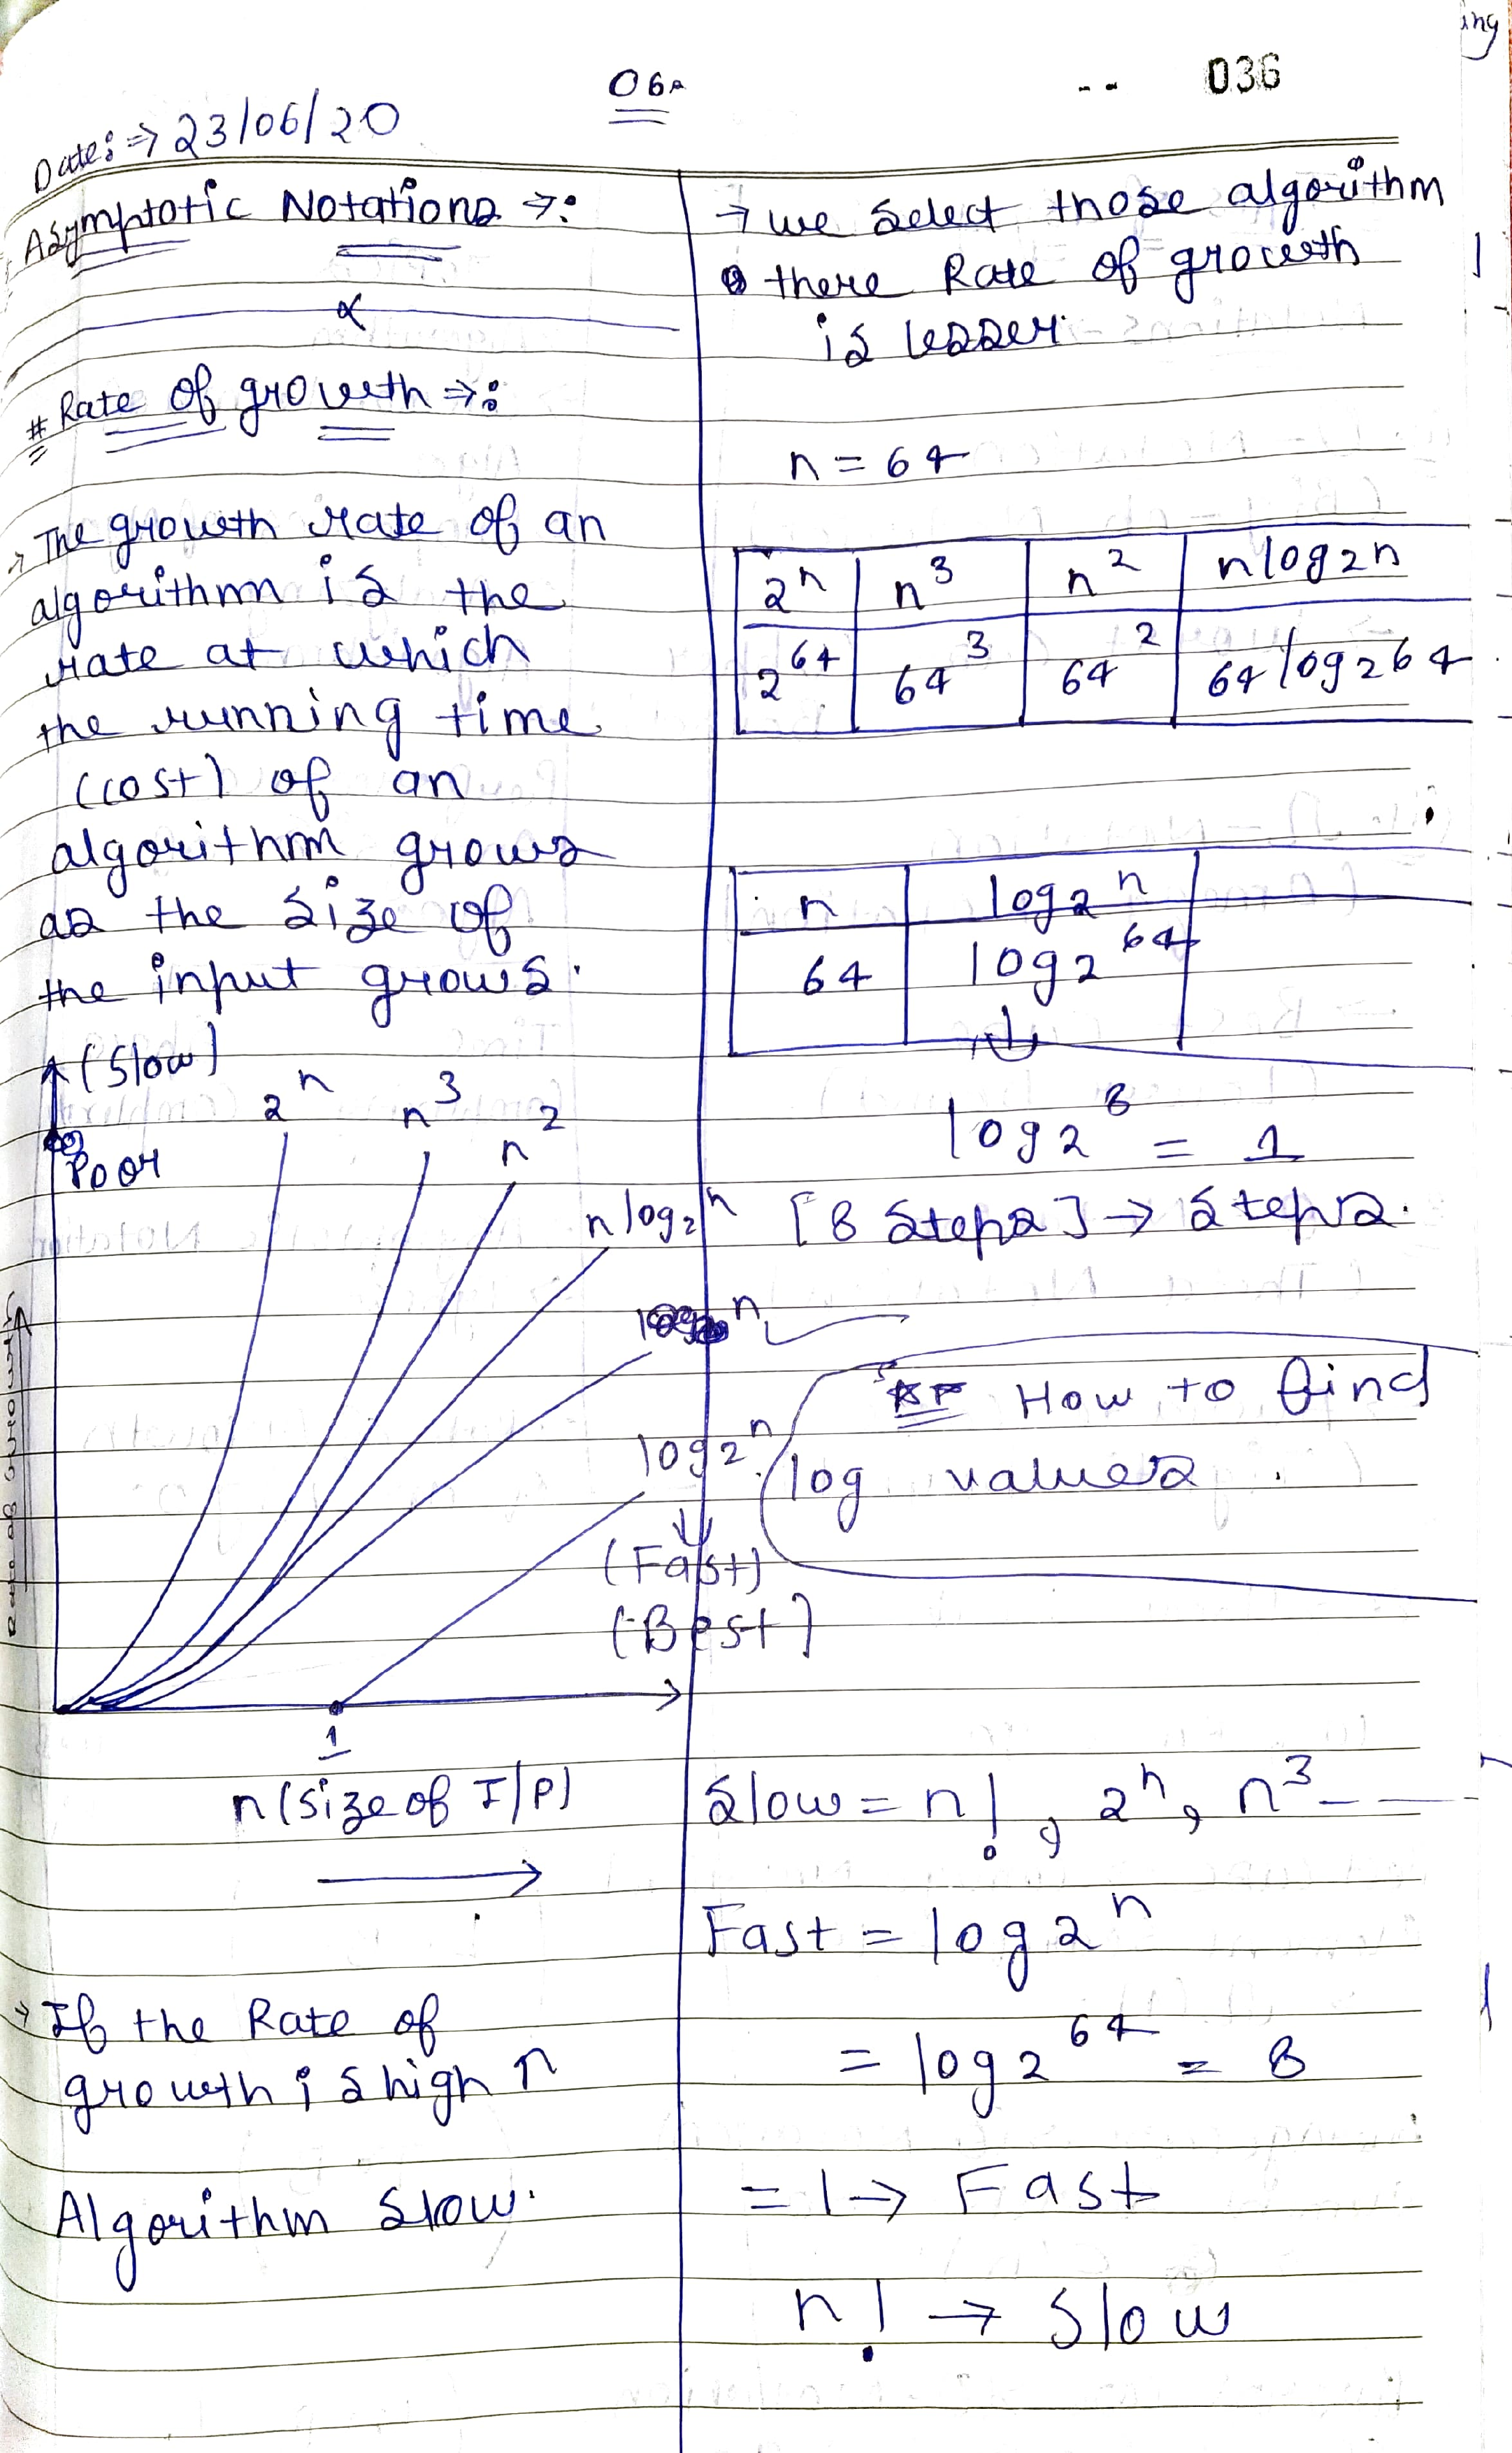 ing
06A
036
Date:⇒ 23/06/20
Asymptotic Notations →:
# Rate of growth ⇒:
→ The growth rate of an
algorithm is the
rate at which
the running time
(cost) of an
algorithm grows
as the size of
the input grows.
(Slow)
Poor
2^n
n^3
n^2
nlog₂n
log₂n
(Fast)
(Best)
1
n (size of I/P)
→ If the Rate of
growth is high ↑
Algorithm slow.
→ we select those algorithm
there Rate of growth
is lesser.
n = 64
2^n n^3 n^2 nlog₂n
2^64 64^3 64^2 64log₂64
n log₂n
64 log₂64
log₂8 = 1
[8 steps] → steps.
How to find
log values.
Slow = n!, 2^n, n^3 - —
Fast = log₂n
= log₂64 = 8
= 1 → Fast
n! → Slow